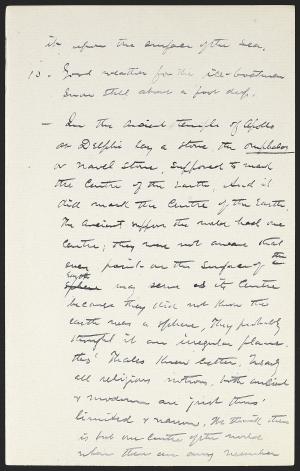 it upon the surface of the sea.
10. Good weather for the ice-boatmen
Snow still about a foot deep.
— In the ancient temple of Apollo
at Delphi lay a stone, the omphalos
or navel stone, supposed to mark
the centre of the Earth. And it
did mark the Centre of the Earth.
The ancient suppose the world had one
Centre; they were not aware that
every point on the surface of the
earth sphere may serve as its Centre
because they did not know the
earth was a sphere, they probably
thought it an irregular plane.
tho' Thales knew better. Nearly
all religious notions, both ancient
& modern are just thus
limited & narrow. We think there
is but one centre of the world
when there are any number